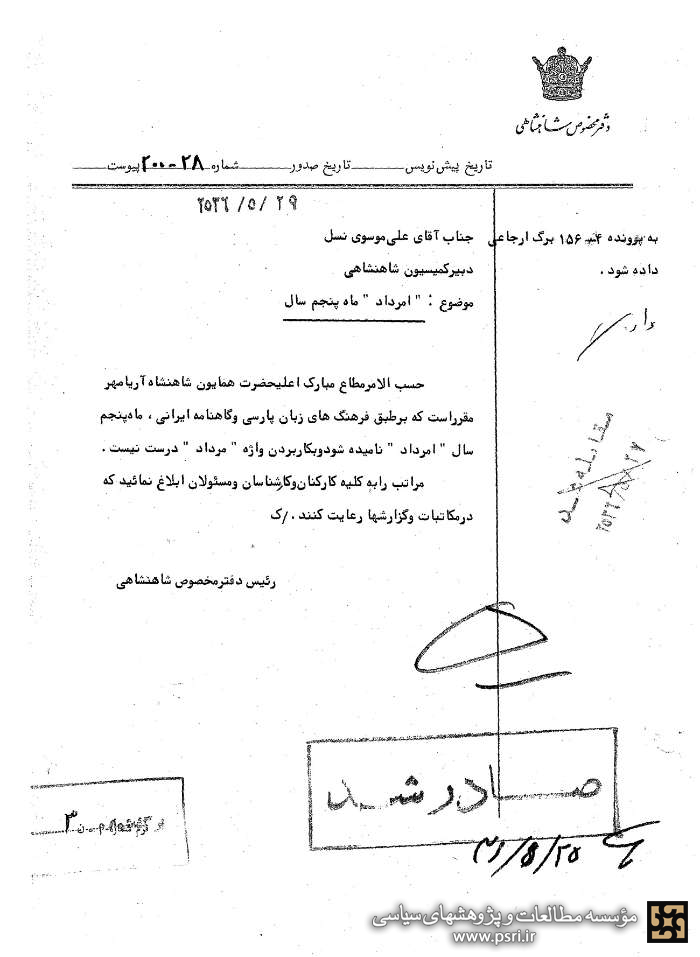 دفتر مخصوص شاهنشاهی
تاریخ پیش‌نویس تاریخ صدور شماره ۲۸-۲۰۰ پیوست
۲۵۳۶/۵/۲۹
جناب آقای علی‌موسوی نسل
دبیرکمیسیون شاهنشاهی
موضوع : " امرداد " ماه پنجم سال
به پرونده ۱۵۶ برگ ارجاعی
داده شود .
حسب الامرمطاع مبارک اعلیحضرت همایون شاهنشاه آریامهر
مقرراست که برطبق فرهنگ های زبان پارسی وگاهنامه ایرانی ، ماه‌پنجم
سال " امرداد " نامیده شودوبکاربردن واژه " مرداد " درست نیست .
مراتب رابه کلیه کارکنان‌وکارشناسان ومسئولان ابلاغ نمائید که
درمکاتبات وگزارشها رعایت کنند . /ک
رئیس دفترمخصوص شاهنشاهی
صادر شد
مؤسسه مطالعات و پژوهشهای سیاسی
www.psri.ir